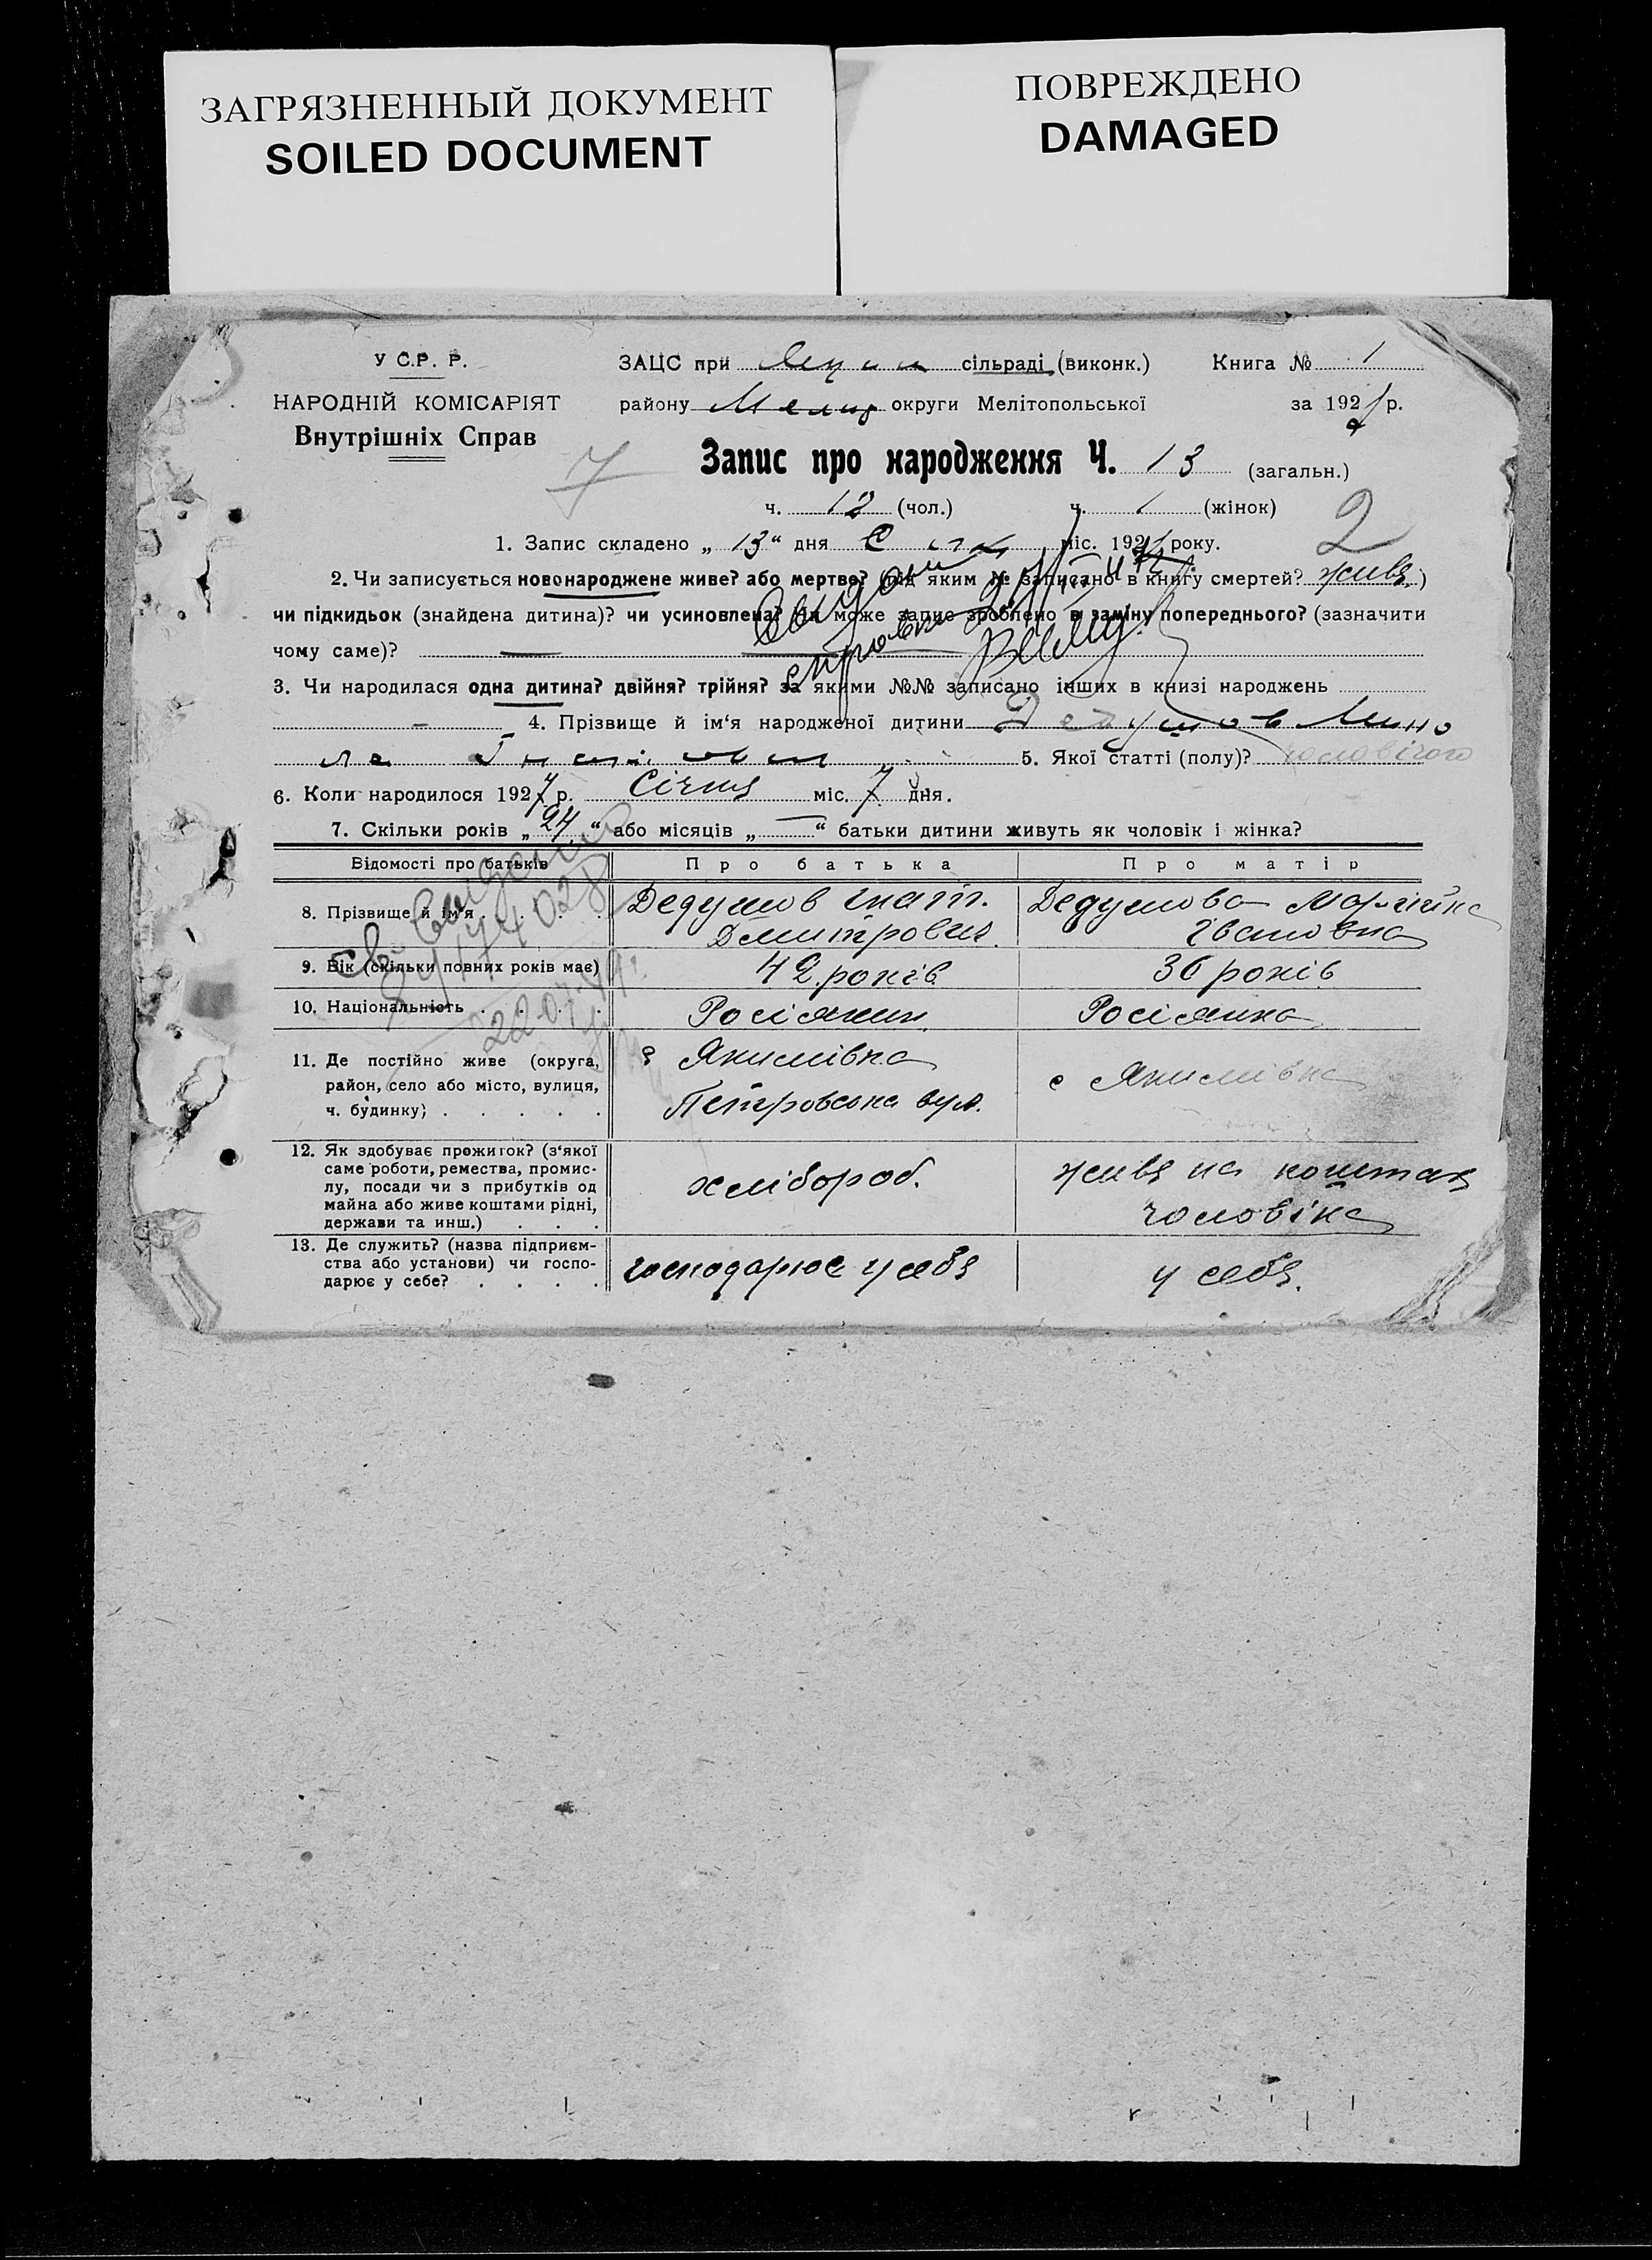 ЗАГРЯЗНЕННЫЙ ДОКУМЕНТ
SOILED DOCUMENT
ПОВРЕЖДЕНО
DAMAGED
У С.Р.Р.
НАРОДНІЙ КОМІСАРІЯТ
Внутрішніх Справ
ЗАЦС при сільраді (виконк.) Книга № 1
району Меліт округи Мелітопольської за 1927 р.
7
Запис про народження Ч. 13 (загальн.)
ч. 12 (чол.) ч. 1 (жінок)
2
1. Запис складено „13“ дня міс. 192 року.
2. Чи записується новонароджене живе? або мертве? (під яким № записано в книгу смертей? живе)
чи підкидьок (знайдена дитина)? чи усиновлена? Чи може запис зроблено в заміну попереднього? (зазначити
чому саме)? —
3. Чи народилася одна дитина? двійня? трійня? за якими №№ записано інших в книзі народжень
— 4. Прізвище й ім‘я народженої дитини Дедушов Мико
ла 5. Якої статті (полу)? чоловічого
6. Коли народилося 1927 р. Січня міс. 7 дня.
7. Скільки років „24“ або місяців „—“ батьки дитини живуть як чоловік і жінка?
Відомості про батьків Про батька Про матір
8. Прізвище й ім‘я . . . . Дедушов Гнат. Дедушова
Дмитрович Івановна
9. Вік (скільки повних років має) 42 років 36 років
10. Національність . . . . Росіянин Росіянка
11. Де постійно живе (округа, с Якимівка с Якимівка
район, село або місто, вулиця, Петровська вул.
ч. будинку) . . . . .
12. Як здобуває прожиток? (з‘якої хлібороб. живе на коштах
саме роботи, ремества, промис- чоловіка
лу, посади чи з прибутків од
майна або живе коштами рідні,
держави та инш.) . . .
13. Де служить? (назва підприєм- господарює у себе у себе.
ства або установи) чи госпо-
дарює у себе? . . . .